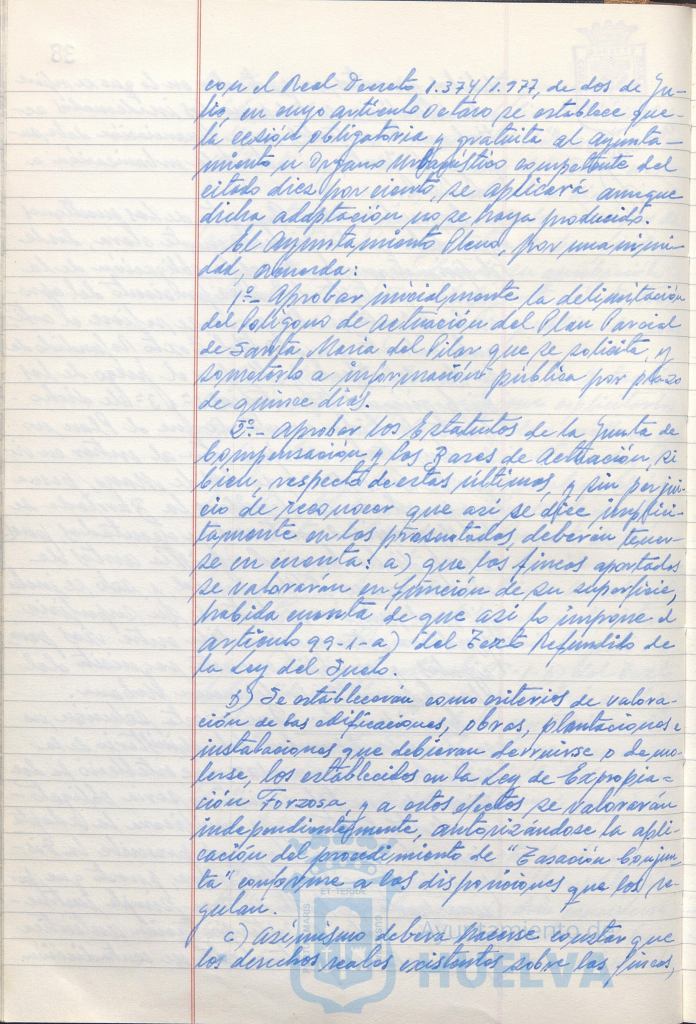 con el Real Decreto 1.374/1.977, de dos de Ju-
lio, en cuyo artículo octavo se establece que
la cesión obligatoria y gratuita al Ayunta-
miento u Organo Urbanístico competente del
citado diez por ciento, se aplicará aunque
dicha adaptación no se haya producido.
El Ayuntamiento Pleno, por unanimi-
dad, acuerda:
1º.- Aprobar inicialmente la delimitación
del Polígono de Actuación del Plan Parcial
de Santa María del Pilar que se solicita, y
someterlo a información pública por plazo
de quince días.
2º.- Aprobar los Estatutos de la Junta de
Compensación y las Bases de Actuación, si
bien, respecto de estas últimas y sin perjui-
cio de reconocer que así se dice implíci-
tamente en las presentadas, deberán tener-
se en cuenta: a) que las fincas aportadas
se valorarán en función de su superficie,
habida cuenta de que así lo impone el
artículo 99-1-a) del Texto Refundido de
la Ley del Suelo.
b) Se establecerán como criterios de valora-
ción de las edificaciones, obras, plantaciones e
instalaciones que debieran derruirse o demo-
lerse, los establecidos en la Ley de Expropia-
ción Forzosa, y a estos efectos se valorarán
independientemente, autorizándose la apli-
cación del procedimiento de "Tasación Conjun-
ta" conforme a las disposiciones que los re-
gulan.
c) Asimismo deberá hacerse constar que
los derechos reales existentes sobre las fincas,
Ayuntamiento de
HUELVA